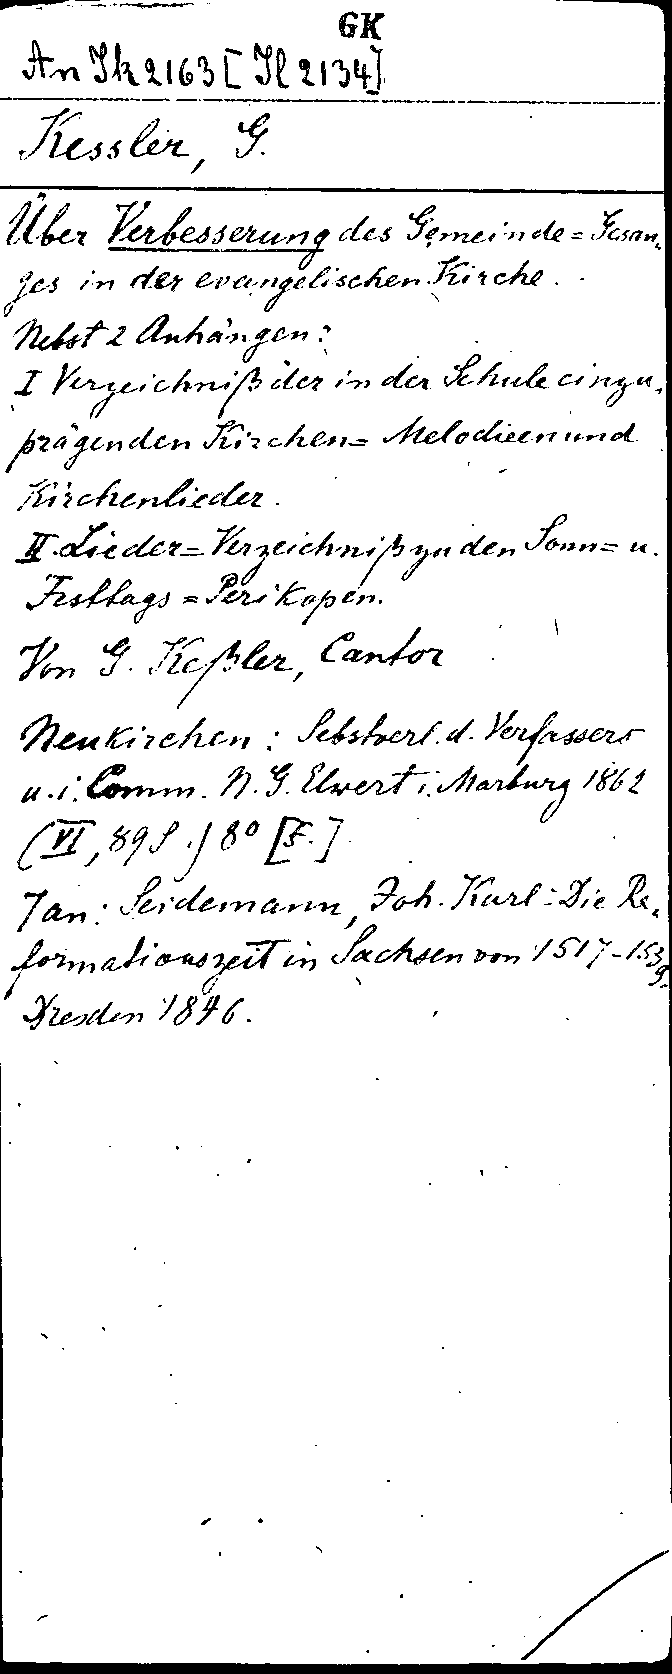 GK
An Ik 2163 [Il 2134]
Kessler, G.
Über Verbesserung des Gemeinde=Gesan-
ges in der evangelischen Kirche.
Nebst 2 Anhängen:
I Verzeichniß der in der Schule einzu-
prägenden Kirchen= Melodieen und
Kirchenlieder.
II. Lieder=Verzeichniß zu den Sonn= u.
Festtags=Perikopen.
Von G. Keßler, Cantor
Neukirchen: Sebstverl. d. Verfassers
u. i. Comm. N. G. Elwert i. Marburg 1862
(VI, 89 S.) 8° [F.]
Jan: Seidemann, Joh. Karl: Die Re-
formationszeit in Sachsen von 1517-1539.
Dresden 1846.